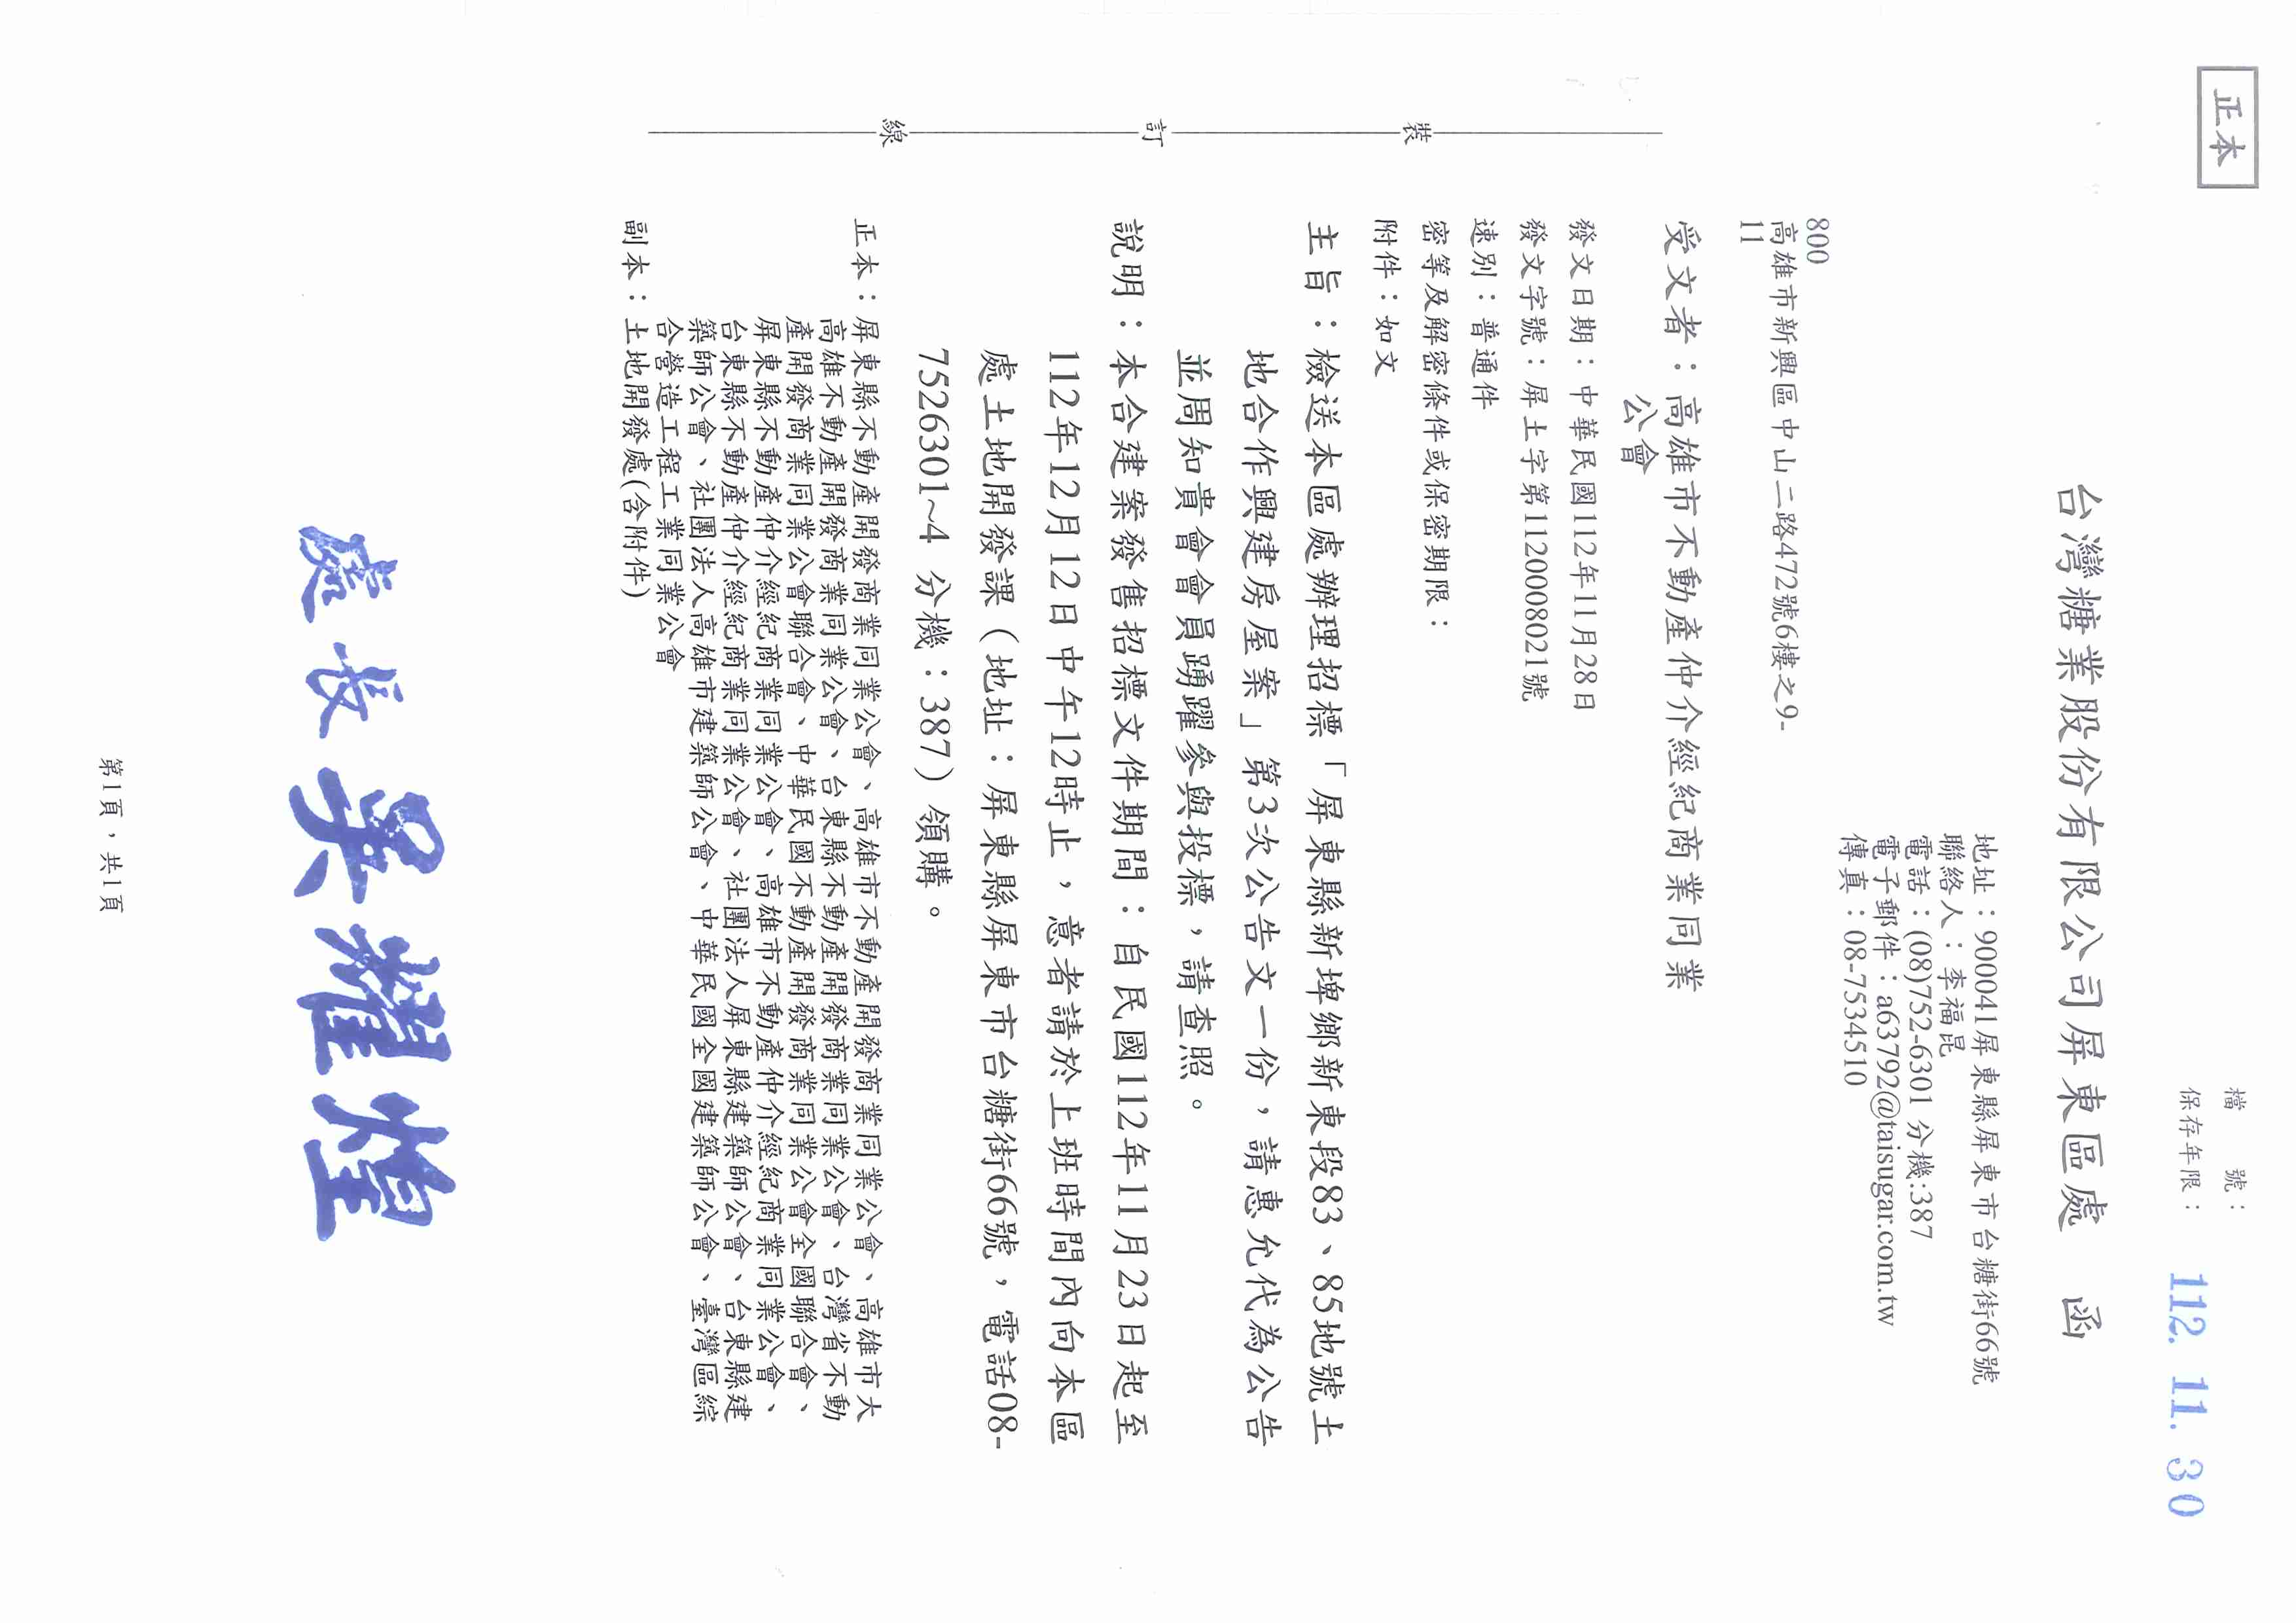 正本
檔　　號：
保存年限：
112. 11. 30
台灣糖業股份有限公司屏東區處　函
地址：900041屏東縣屏東市台糖街66號
聯絡人：李福昆
電話：(08)752-6301 分機:387
電子郵件：a63792@taisugar.com.tw
傳真：08-7534510
800
高雄市新興區中山二路472號6樓之9-
11
受文者：高雄市不動產仲介經紀商業同業
公會
發文日期：中華民國112年11月28日
發文字號：屏土字第1120008021號
速別：普通件
密等及解密條件或保密期限：
附件：如文
主旨：檢送本區處辦理招標「屏東縣新埤鄉新東段83、85地號土
地合作興建房屋案」第3次公告文一份，請惠允代為公告
並周知貴會會員踴躍參與投標，請查照。
說明：本合建案發售招標文件期間：自民國112年11月23日起至
112年12月12日中午12時止，意者請於上班時間內向本區
處土地開發課（地址：屏東縣屏東市台糖街66號，電話08-
7526301~4 分機：387）領購。
正本：屏東縣不動產開發商業同業公會、高雄市不動產開發商業同業公會、高雄市大
高雄不動產開發商業同業公會、台東縣不動產開發商業同業公會、台灣省不動
產開發商業同業公會聯合會、中華民國不動產開發商業同業公會全國聯合會、
屏東縣不動產仲介經紀商業同業公會、高雄市不動產仲介經紀商業同業公會、
台東縣不動產仲介經紀商業同業公會、社團法人屏東縣建築師公會、台東縣建
築師公會、社團法人高雄市建築師公會、中華民國全國建築師公會、臺灣區綜
合營造工程工業同業公會
副本：土地開發處(含附件)
處長吳耀煌
裝
訂
線
第1頁，共1頁